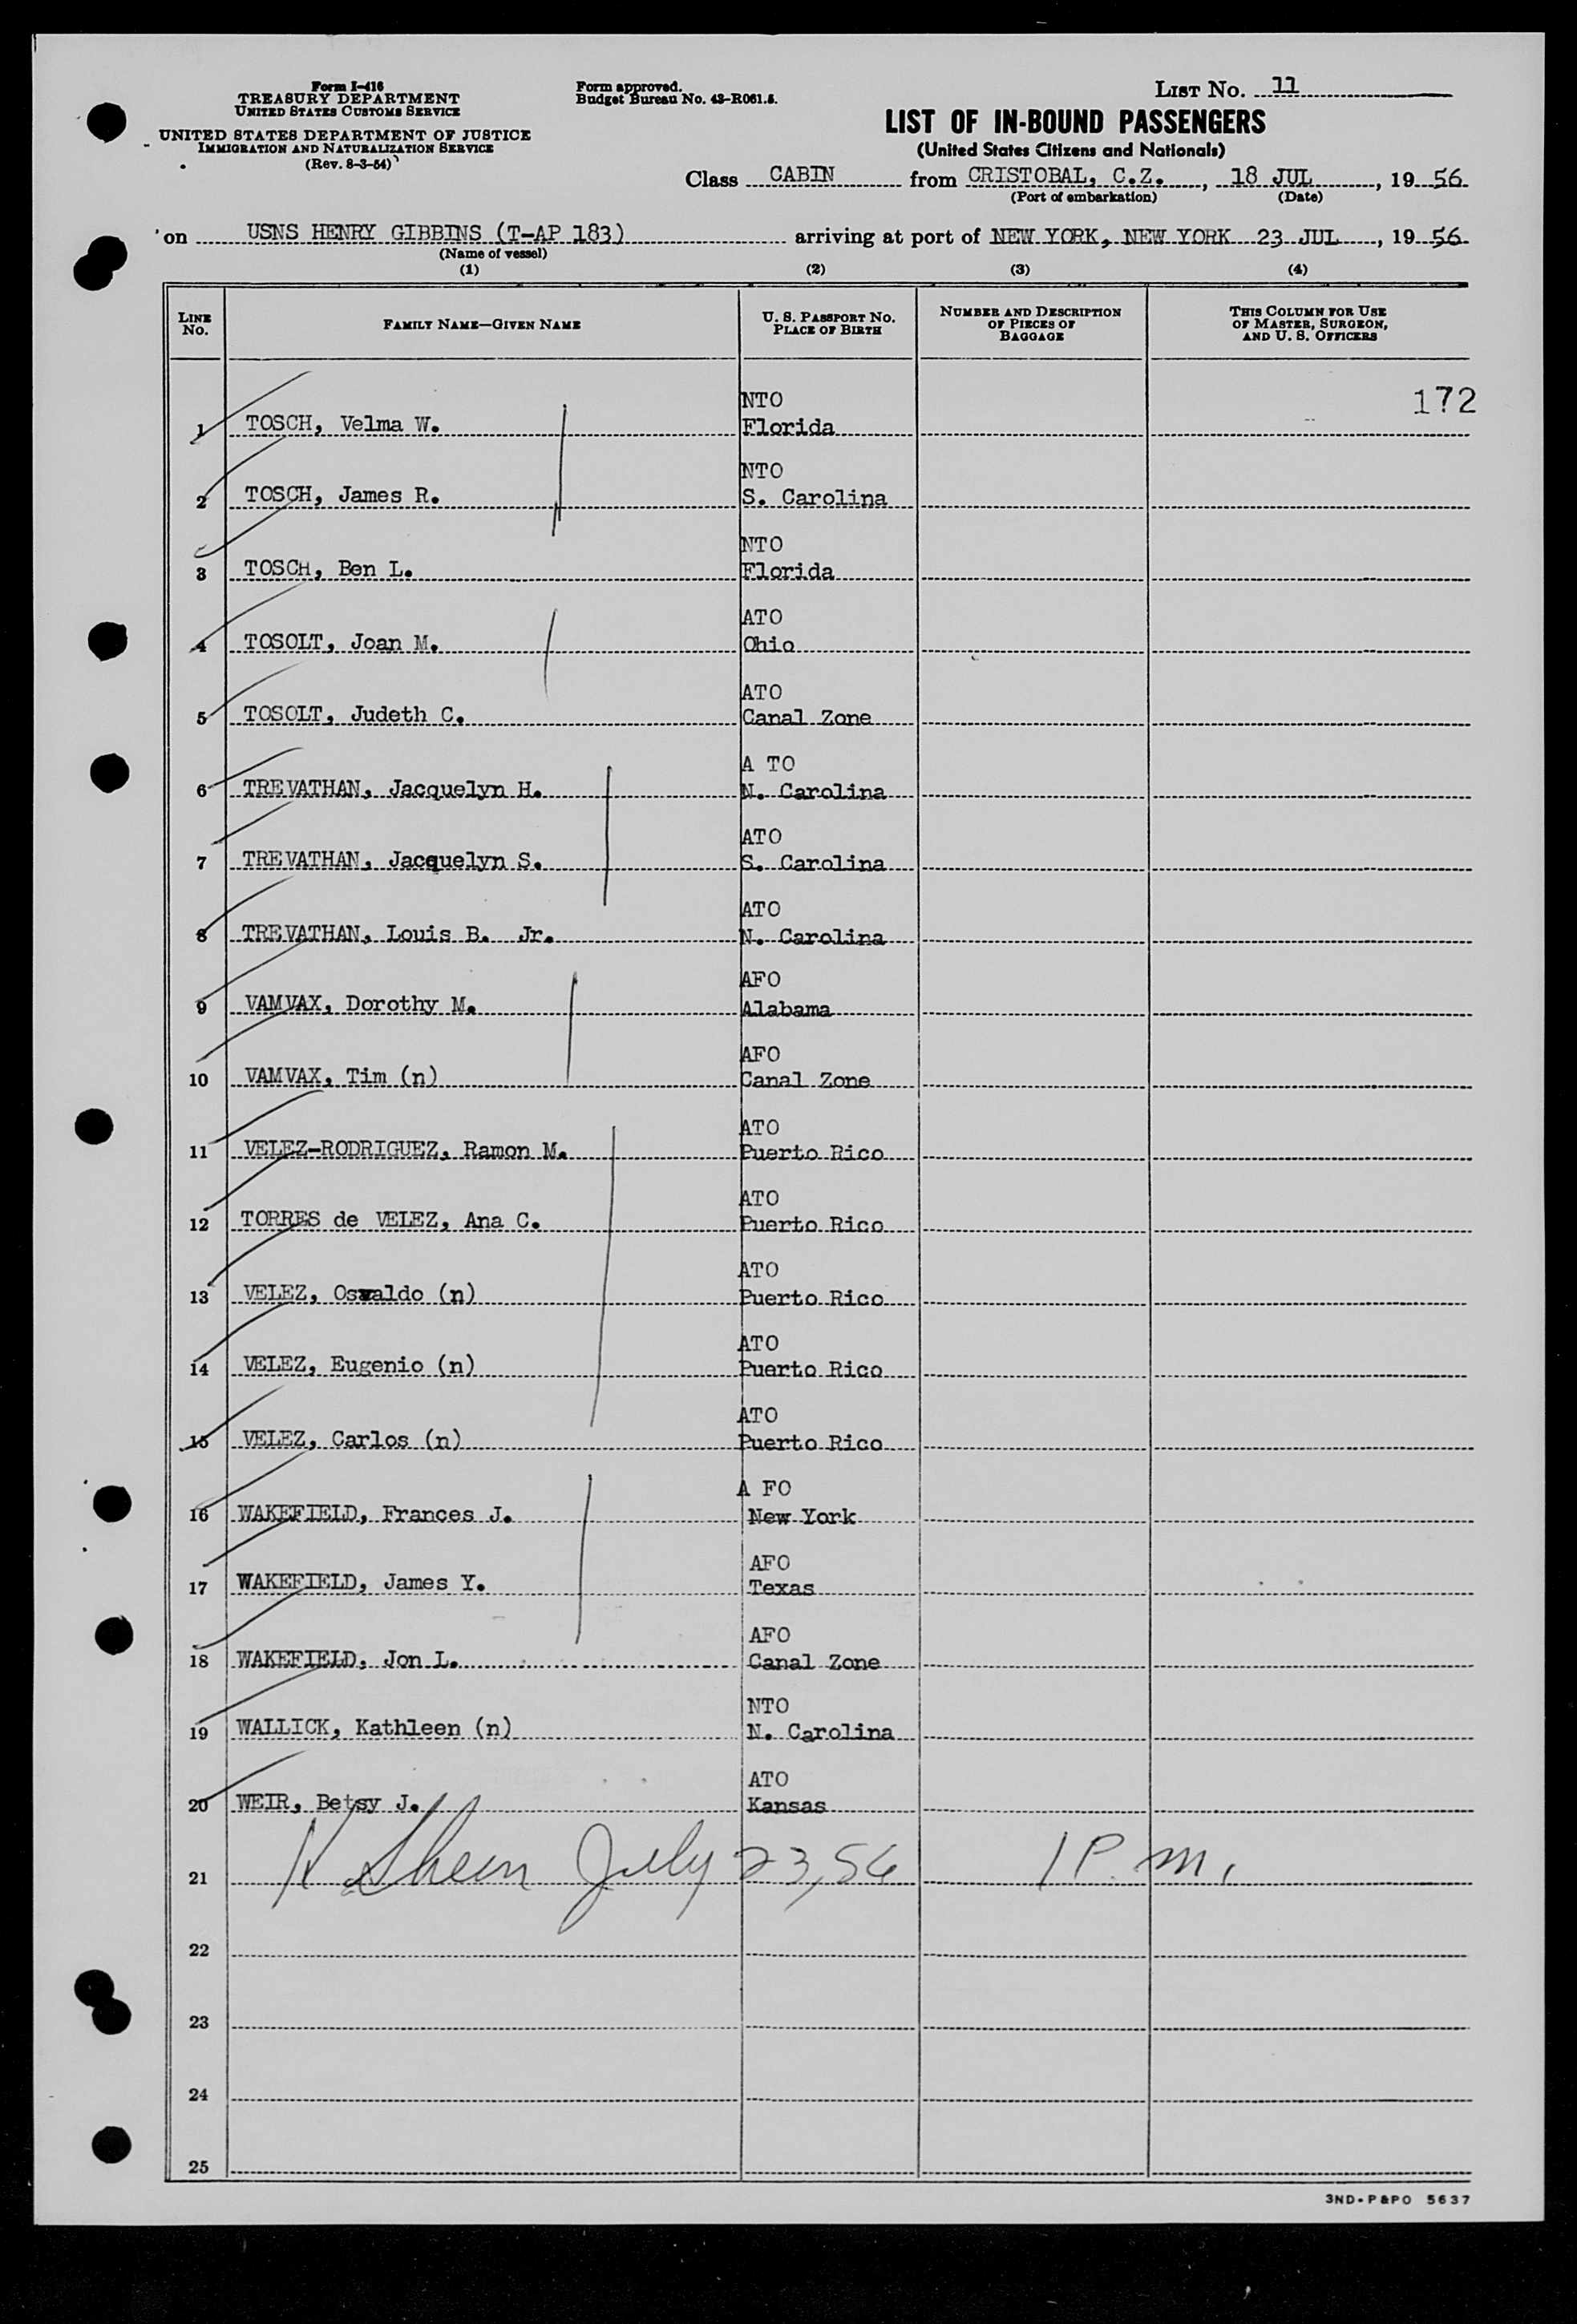 Form I-416
TREASURY DEPARTMENT
UNITED STATES CUSTOMS SERVICE
UNITED STATES DEPARTMENT OF JUSTICE
IMMIGRATION AND NATURALIZATION SERVICE
(Rev. 8-3-54)
Form approved.
Budget Bureau No. 43-R061.5.
LIST No. 11
LIST OF IN-BOUND PASSENGERS
(United States Citizens and Nationals)
Class CABIN from CRISTOBAL, C.Z., 18 JUL, 1956
(Port of embarkation) (Date)
on USNS HENRY GIBBINS (T-AP 183) arriving at port of NEW YORK, NEW YORK 23 JUL, 1956
(Name of vessel)
(1) (2) (3) (4)
LINE NO. FAMILY NAME—GIVEN NAME U. S. PASSPORT NO. PLACE OF BIRTH NUMBER AND DESCRIPTION OF PIECES OF BAGGAGE THIS COLUMN FOR USE OF MASTER, SURGEON, AND U. S. OFFICERS
172
NTO
1 TOSCH, Velma W. Florida
NTO
2 TOSCH, James R. S. Carolina
NTO
3 TOSCH, Ben L. Florida
ATO
4 TOSOLT, Joan M. Ohio
ATO
5 TOSOLT, Judeth C. Canal Zone
A TO
6 TREVATHAN, Jacquelyn H. N. Carolina
ATO
7 TREVATHAN, Jacquelyn S. S. Carolina
ATO
8 TREVATHAN, Louis B. Jr. N. Carolina
AFO
9 VAMVAX, Dorothy M. Alabama
AFO
10 VAMVAX, Tim (n) Canal Zone
ATO
11 VELEZ-RODRIGUEZ, Ramon M. Puerto Rico
ATO
12 TORRES de VELEZ, Ana C. Puerto Rico
ATO
13 VELEZ, Oswaldo (n) Puerto Rico
ATO
14 VELEZ, Eugenio (n) Puerto Rico
ATO
15 VELEZ, Carlos (n) Puerto Rico
A FO
16 WAKEFIELD, Frances J. New York
AFO
17 WAKEFIELD, James Y. Texas
AFO
18 WAKEFIELD, Jon L. Canal Zone
NTO
19 WALLICK, Kathleen (n) N. Carolina
ATO
20 WEIR, Betsy J. Kansas
21 July 23, 56 1 P. m.
22
23
24
25
3ND-P&PO 5637